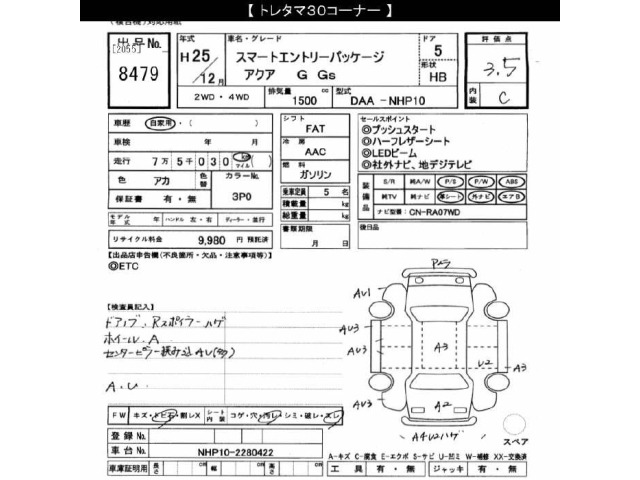 【 トレタマ30コーナー 】
(検合肌)対応用紙
出品No.
[2055]
8479
年式
H25/12月
車名・グレード
スマートエントリーパッケージ
アクア G Gs
ドア
5
形状
HB
評価点
3.5
内装
C
2WD・4WD
排気量
1500 cc
型式
DAA -NHP10
車歴 自家用・( )
車検 年 月
走行 7万5千030 km マイル ( )
色 アカ
色替
カラーNo.
3P0
保証書 有・無
モデル年式 年
ハンドル 左・右
ディーラー・並行
リサイクル料金 9,980 円 預託済
シフト
FAT
冷房
AAC
燃料
ガソリン
乗車定員 5 名
積載量 kg
総重量 kg
書類期限
月 日
セールスポイント
◎プッシュスタート
◎ハーフレザーシート
◎LEDビーム
◎社外ナビ、地デジテレビ
装備品
S/R 純A/W P/S P/W ABS
純TV 純ナビ 革シート 外ナビ エアB
ナビ型番: CN-RA07WD
後日品
【出品店申告欄(不良箇所・欠品・注意事項等)】
◎ETC
【検査員記入】
ドアノブ、Rスポイラーハゲ
ホイールA
センターピラー積み込AU(多)
A.U
FW キズ・トビ石・割レX
シート内装
コゲ・穴・汚レ・シミ・破レ・スレ
登録No.
車台No. NHP10-2280422
車庫証明用 長さ cm 幅 cm 高さ cm
AU1
AU3
AU3
AU3
A3
AU3
U2
A2
A4U2ハゲ
スペア
A-キズ C-腐食 E-エクボ S-サビ U-凹ミ W-補修 XX-交換済
工具 有・無 ジャッキ 有・無